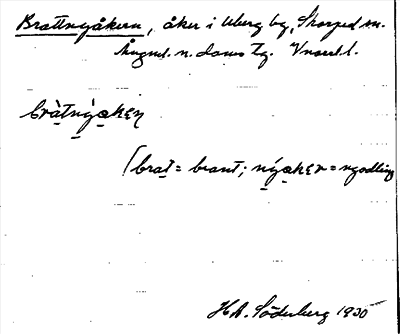 Brattnyåkern, åker i Uberg by, Skorped sn.
Ångml. n. doms tg. Vnorrl. l.
bràtnýakeɳ
(brat = brant; nýaker = nyodling
H A. Söderberg 1930